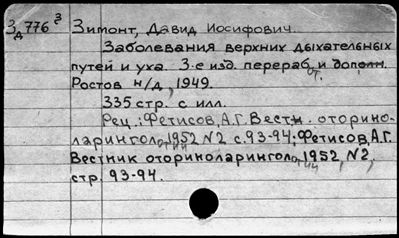 Зд776 3 Зимонт, Давид Иосифович.
Заболевания верхних дыхательных
путей и уха. 3-е изд. перераб. и дополн.
Ростов н/д, 1949.
335 стр. с илл.
Рец.: Фетисов, А.Г. Вестн. оторино-
ларингологии, 1952 №2 с. 93-94; Фетисов, А.Г.
Вестник оториноларингологии, 1952, №2,
стр. 93-94.